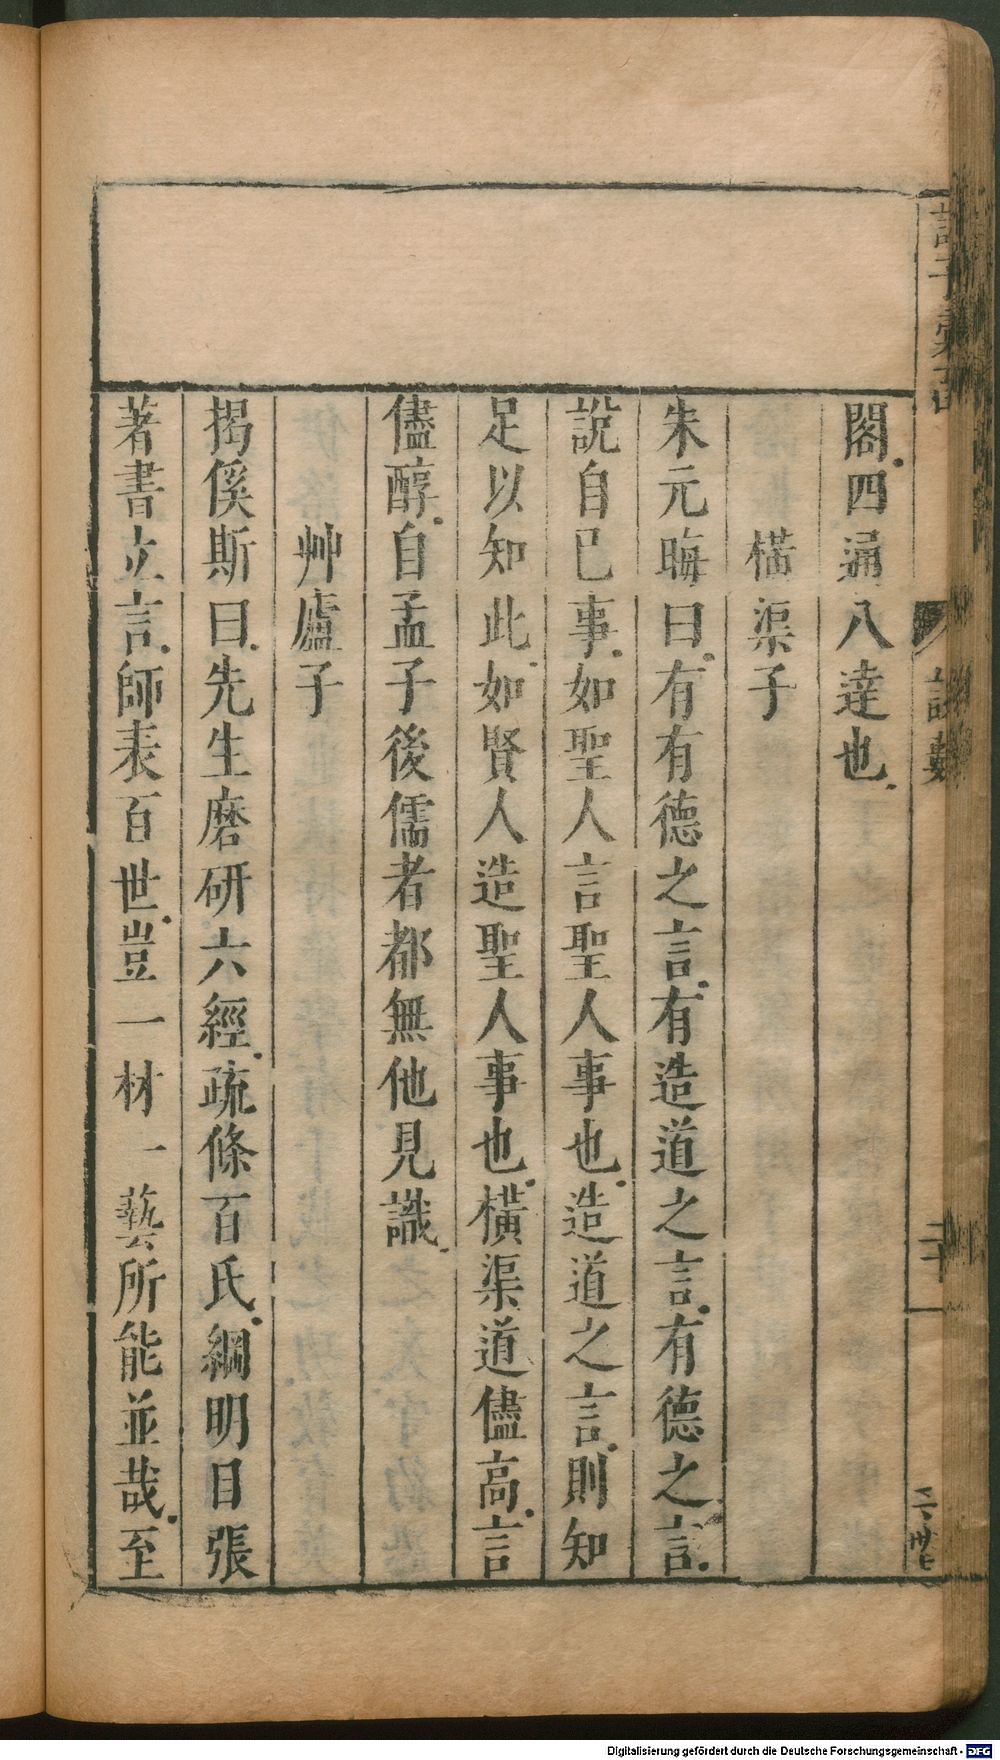 閣。四通八達也。
橫渠子
朱元晦曰。有有德之言。有造道之言。有德之言。
說自已事。如聖人言聖人事也。造道之言。則知
足以知此。如賢人造聖人事也。橫渠道儘高。言
儘醇。自孟子後儒者都無他見識。
艸廬子
揭傒斯曰。先生磨研六經。疏條百氏。綱明目張
著書立言。師表百世。豈一材一藝所能並哉。至
Digitalisierung gefördert durch die Deutsche Forschungsgemeinschaft - DFG